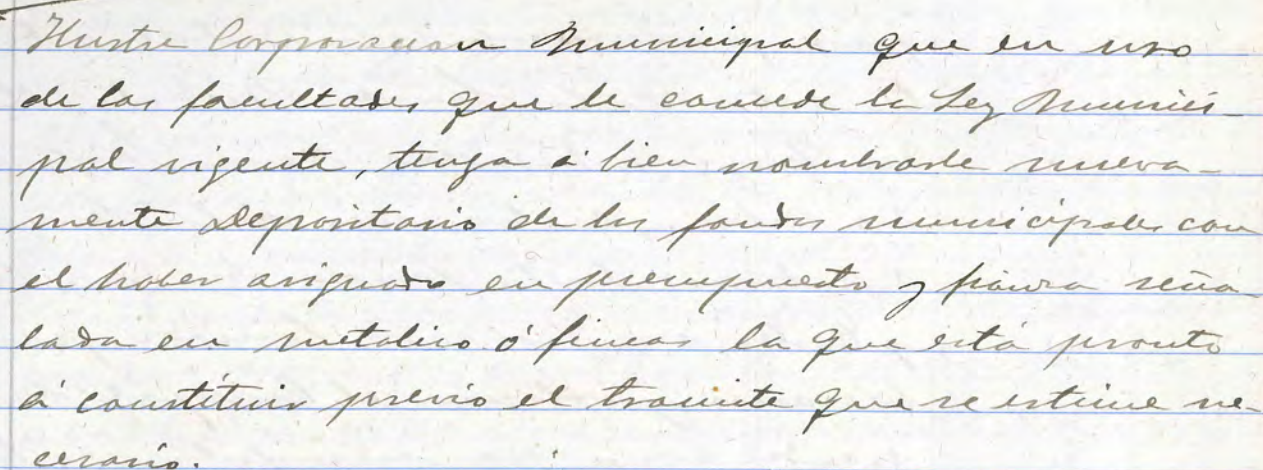 Ilustre Corporacion Municipal que en uso
de las facultades que le concede la Ley Munici-
pal vigente, tenga á bien nombrarle nueva-
mente Depositario de los fondos municipales con
el haber asignado en presupuesto y fianza seña-
lada en metalico ó fincas la que está pronto
á constituir previo el tramite que se estime ne-
cesario.